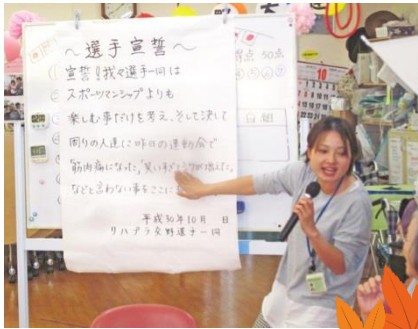 〜選手宣誓〜
宣誓!我々選手一同は
スポーツマンシップよりも
楽しむ事だけを考え、そして決して
周りの人達に昨日の運動会で
筋肉痛になった。「笑いすぎてシワが増えた。
などと言わない事をここに
平成30年10月 日
リハプラ交野選手一同
得点 50点
白組
10